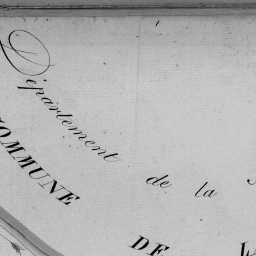 Département de la
COMMUNE DE